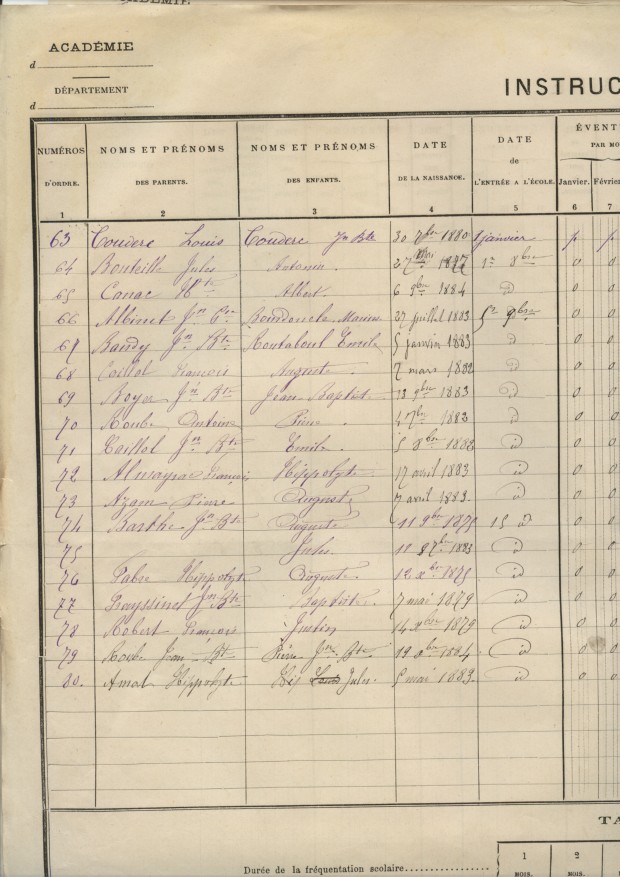 ACADÉMIE
d
DÉPARTEMENT
d
INSTRUC
NUMÉROS D'ORDRE. NOMS ET PRÉNOMS DES PARENTS. NOMS ET PRÉNOMS DES ENFANTS. DATE DE LA NAISSANCE. DATE de L'ENTRÉE A L'ÉCOLE. ÉVENT PAR MO Janvier. Février
1 2 3 4 5 6 7
63 Couderc Louis Couderc Jn Bte 30 7bre 1880 1 janvier p p
64 Bouteille Jules Antonin. 27 mai 1877 1er 8bre 0 0
65 Canac Albert 6 9bre 1884 id 0 0
66 Albinet Jn Marie 27 juillet 1883 9bre 0 0
67 Baudy Jn Bte Montaboul Emile 5 janvier 1883 id 0 0
68 Caillol François Auguste 7 mars 1882 id 0 0
69 Noyer Jn Bte Jean Baptiste 13 9bre 1883 id 0 0
70 Roube Antoine Pierre 4 7bre 1883 id 0 0
71 Caillol Jn Bte Emile 5 8bre 1882 id 0 0
72 Almayrac François Hippolyte 17 avril 1883 id 0 0
73 Azam Pierre Auguste 7 avril 1883. id 0 0
74 Barthe Jn Bte Auguste 11 9bre 1875 15 id 0 0
75 Jules 11 1883 id 0 0
76 Fabre Hippolyte Auguste. 12 xbre 1875 id 0 0
77 Jn Bte Baptiste. 7 mai 1879 id 0 0
78 Robert François Justin 14 xbre 1879 id 0 0
79 Roube Jean Bte Pierre Jn Bte 19 1884 id 0 0
80. Amat Hippolyte Jules. 5 mars 1883. id 0 0
TA
1 2
Durée de la fréquentation scolaire
MOIS. MOIS.